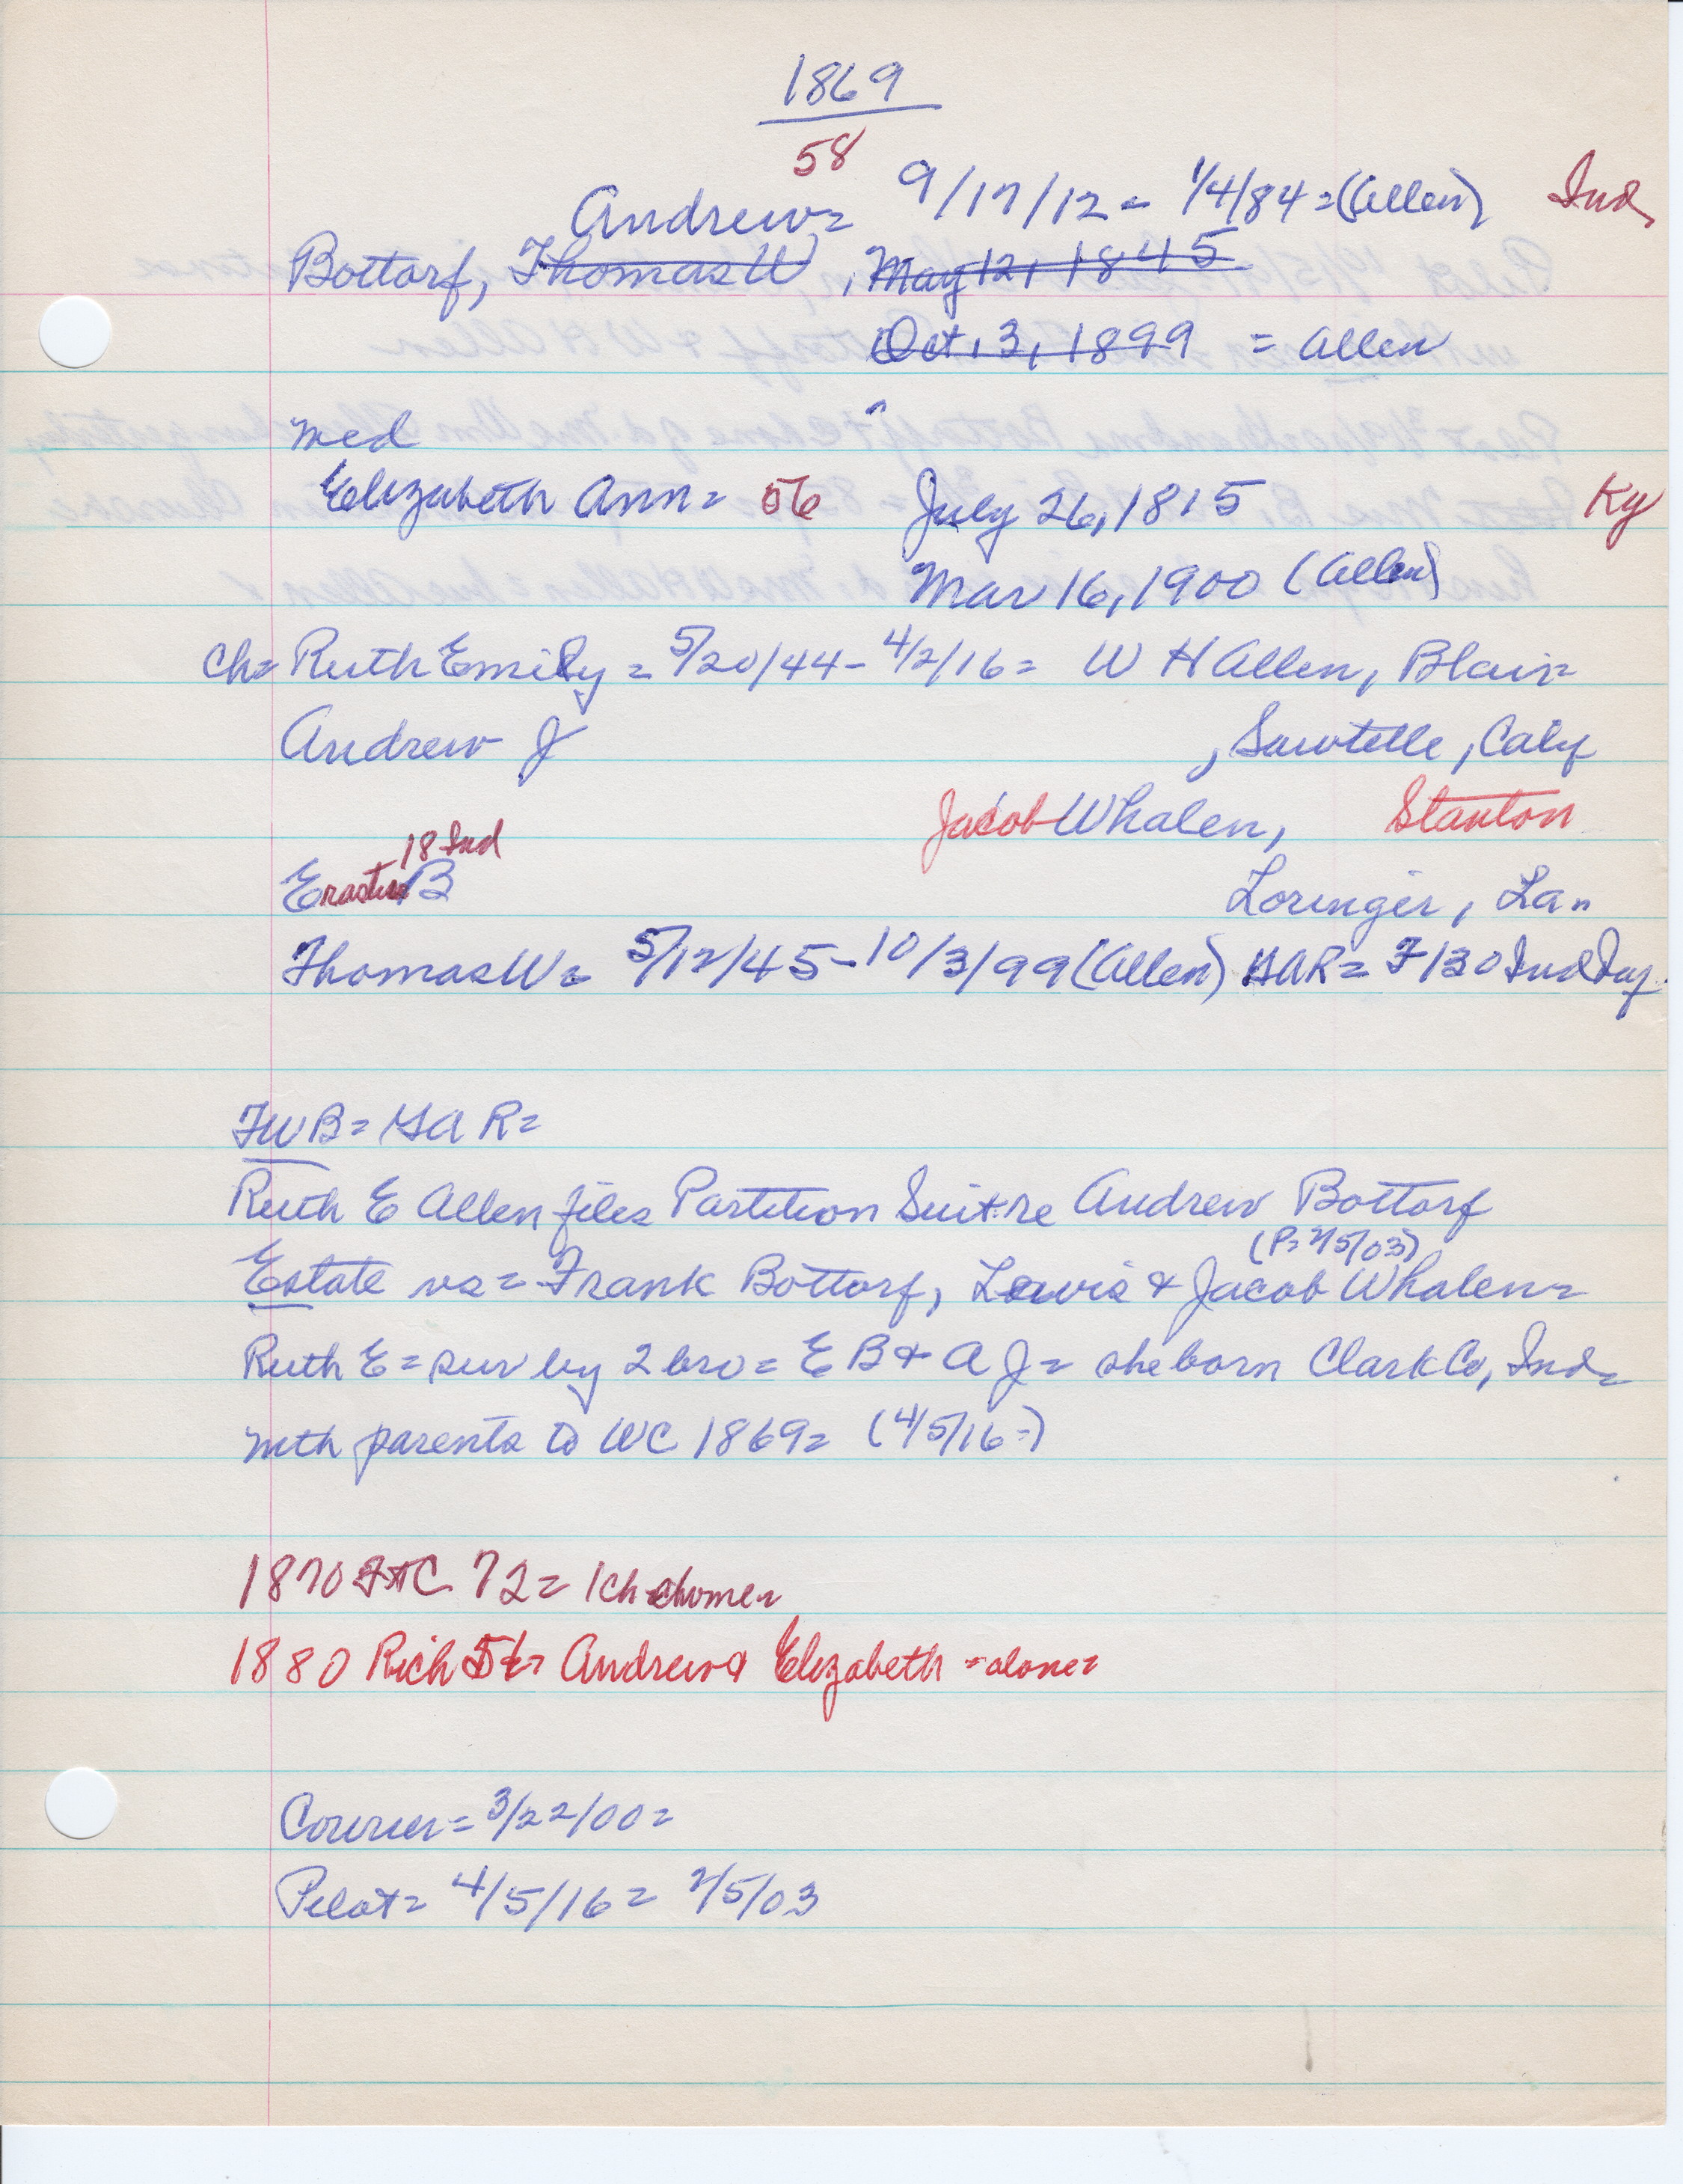 1869
58
Andrew= 9/17/12 - 1/4/84=(Allen) Ind,
Bottorf, Thomas W, May 12, 1845
Oct. 3, 1899 = Allen
Med
Elizabeth Ann= 56 July 26, 1815 Ky
Mar 16, 1900 (Allen)
Ch= Ruth Emily = 5/20/44- 4/2/16= W H Allen, Blair=
Andrew J , Sawtelle, Calif
Jacob Whalen, Stanton
18 Ind
Erastus B Loringer, La=
Thomas W= 5/12/45-10/3/99 (Allen) GAR= F/130 Ind Inf.
TWB= GAR=
Ruth E Allen files Partition Suit re Andrew Bottorf
(P= 2/5/03)
Estate vs= Frank Bottorf, Lewis & Jacob Whalen=
Ruth E= sur by 2 bro= E B & A J= she born Clark Co, Ind=
with parents to WC 1869= (4/5/16=)
1870 72= 1 ch home=
1880 Rich Andrew & Elizabeth =alone=
Courier= 3/22/00=
Pilot= 4/5/16= 2/5/03